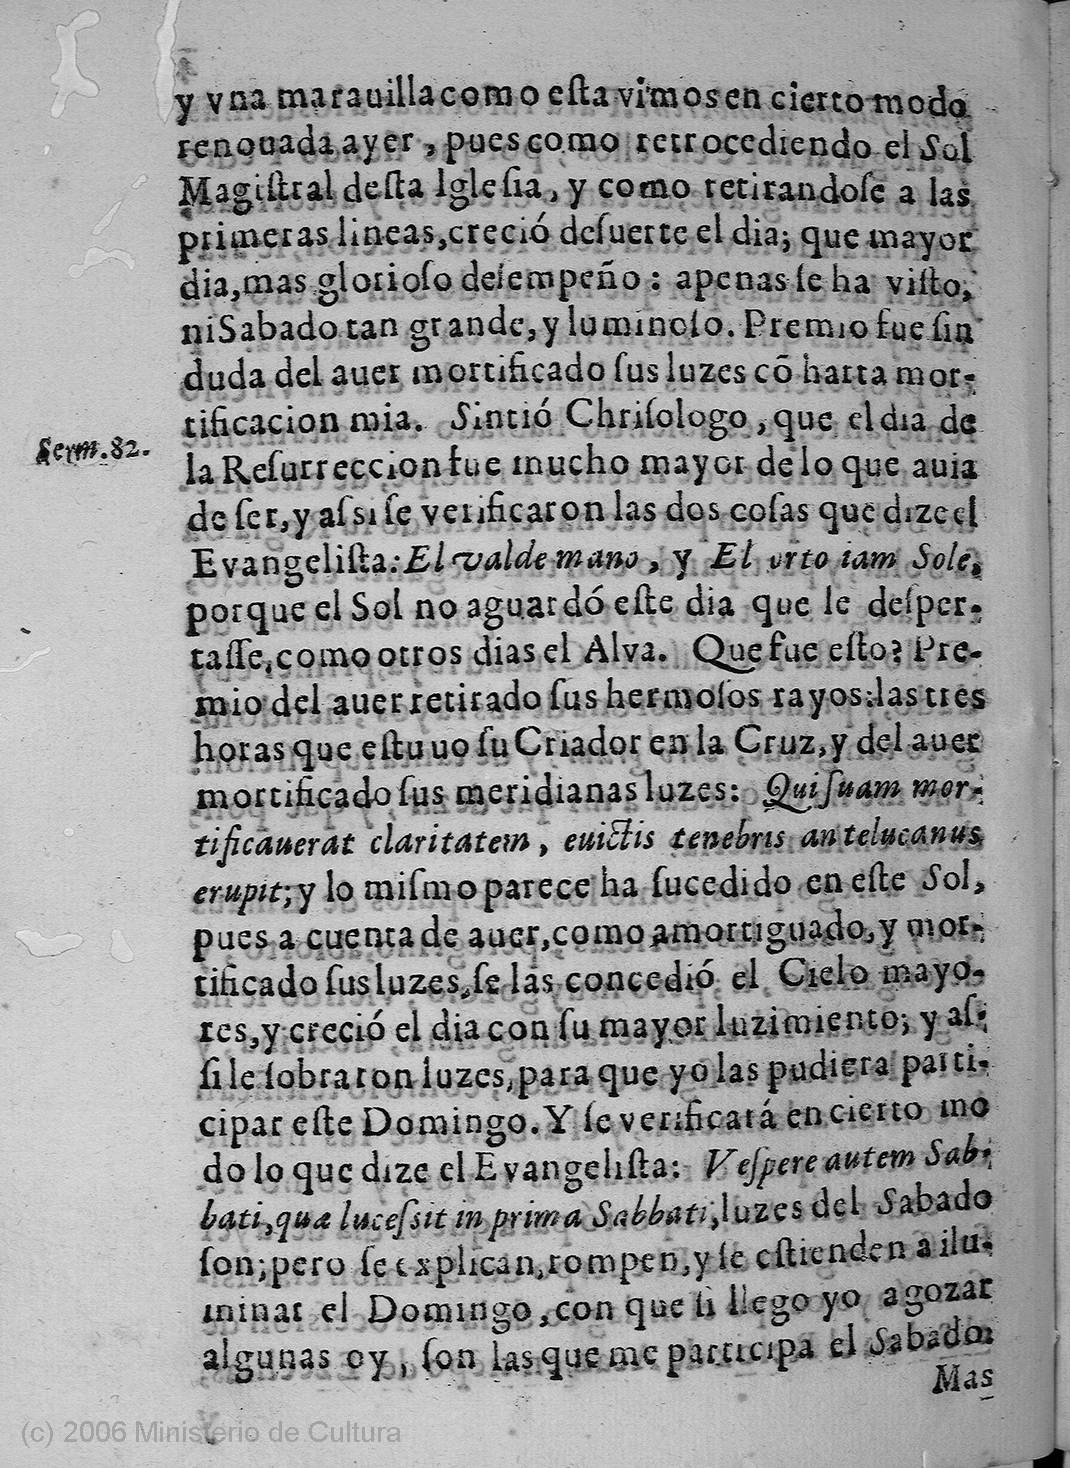 y vna marauilla como eſta vimos en cierto modo
renouada ayer, pues como retrocediendo el Sol
Magiſtral deſta Igleſia, y como retirandoſe a las
primeras lineas, creció deſuerte el dia; que mayor
dia, mas glorioſo deſempeño: apenas ſe ha viſto,
ni Sabado tan grande, y luminoſo. Premio fue ſin
duda del auer mortificado ſus luzes cõ harta mor-
tificacion mia. Sintió Chriſologo, que el dia de
Serm. 82.
la Reſurreccion fue mucho mayor de lo que auia
de ſer, y aſsi ſe verificaron las dos coſas que dize el
Evangeliſta: El valde mano, y El orto iam Sole,
porque el Sol no aguardó eſte dia que le deſper-
taſſe, como otros dias el Alva. Que fue eſto? Pre-
mio del auer retirado ſus hermoſos rayos: las tres
horas que eſtuuo ſu Criador en la Cruz, y del auer
mortificado ſus meridianas luzes: Qui ſuam mor-
tificauerat claritatem, euictis tenebris antelucanus
erupit; y lo miſmo parece ha ſucedido en eſte Sol,
pues a cuenta de auer, como amortiguado, y mor-
tificado ſus luzes, ſe las concedió el Cielo mayo-
res, y creció el dia con ſu mayor luzimiento; y aſ-
ſi le ſobraron luzes, para que yo las pudiera parti-
cipar eſte Domingo. Y ſe verificará en cierto mo
do lo que dize el Evangeliſta: Veſpere autem Sab-
bati, quæ luceſsit in prima Sabbati, luzes del Sabado
ſon; pero ſe explican, rompen, y ſe eſtienden a ilu-
minar el Domingo, con que ſi llego yo a gozar
algunas oy, ſon las que me participa el Sabado:
Mas
(c) 2006 Ministerio de Cultura